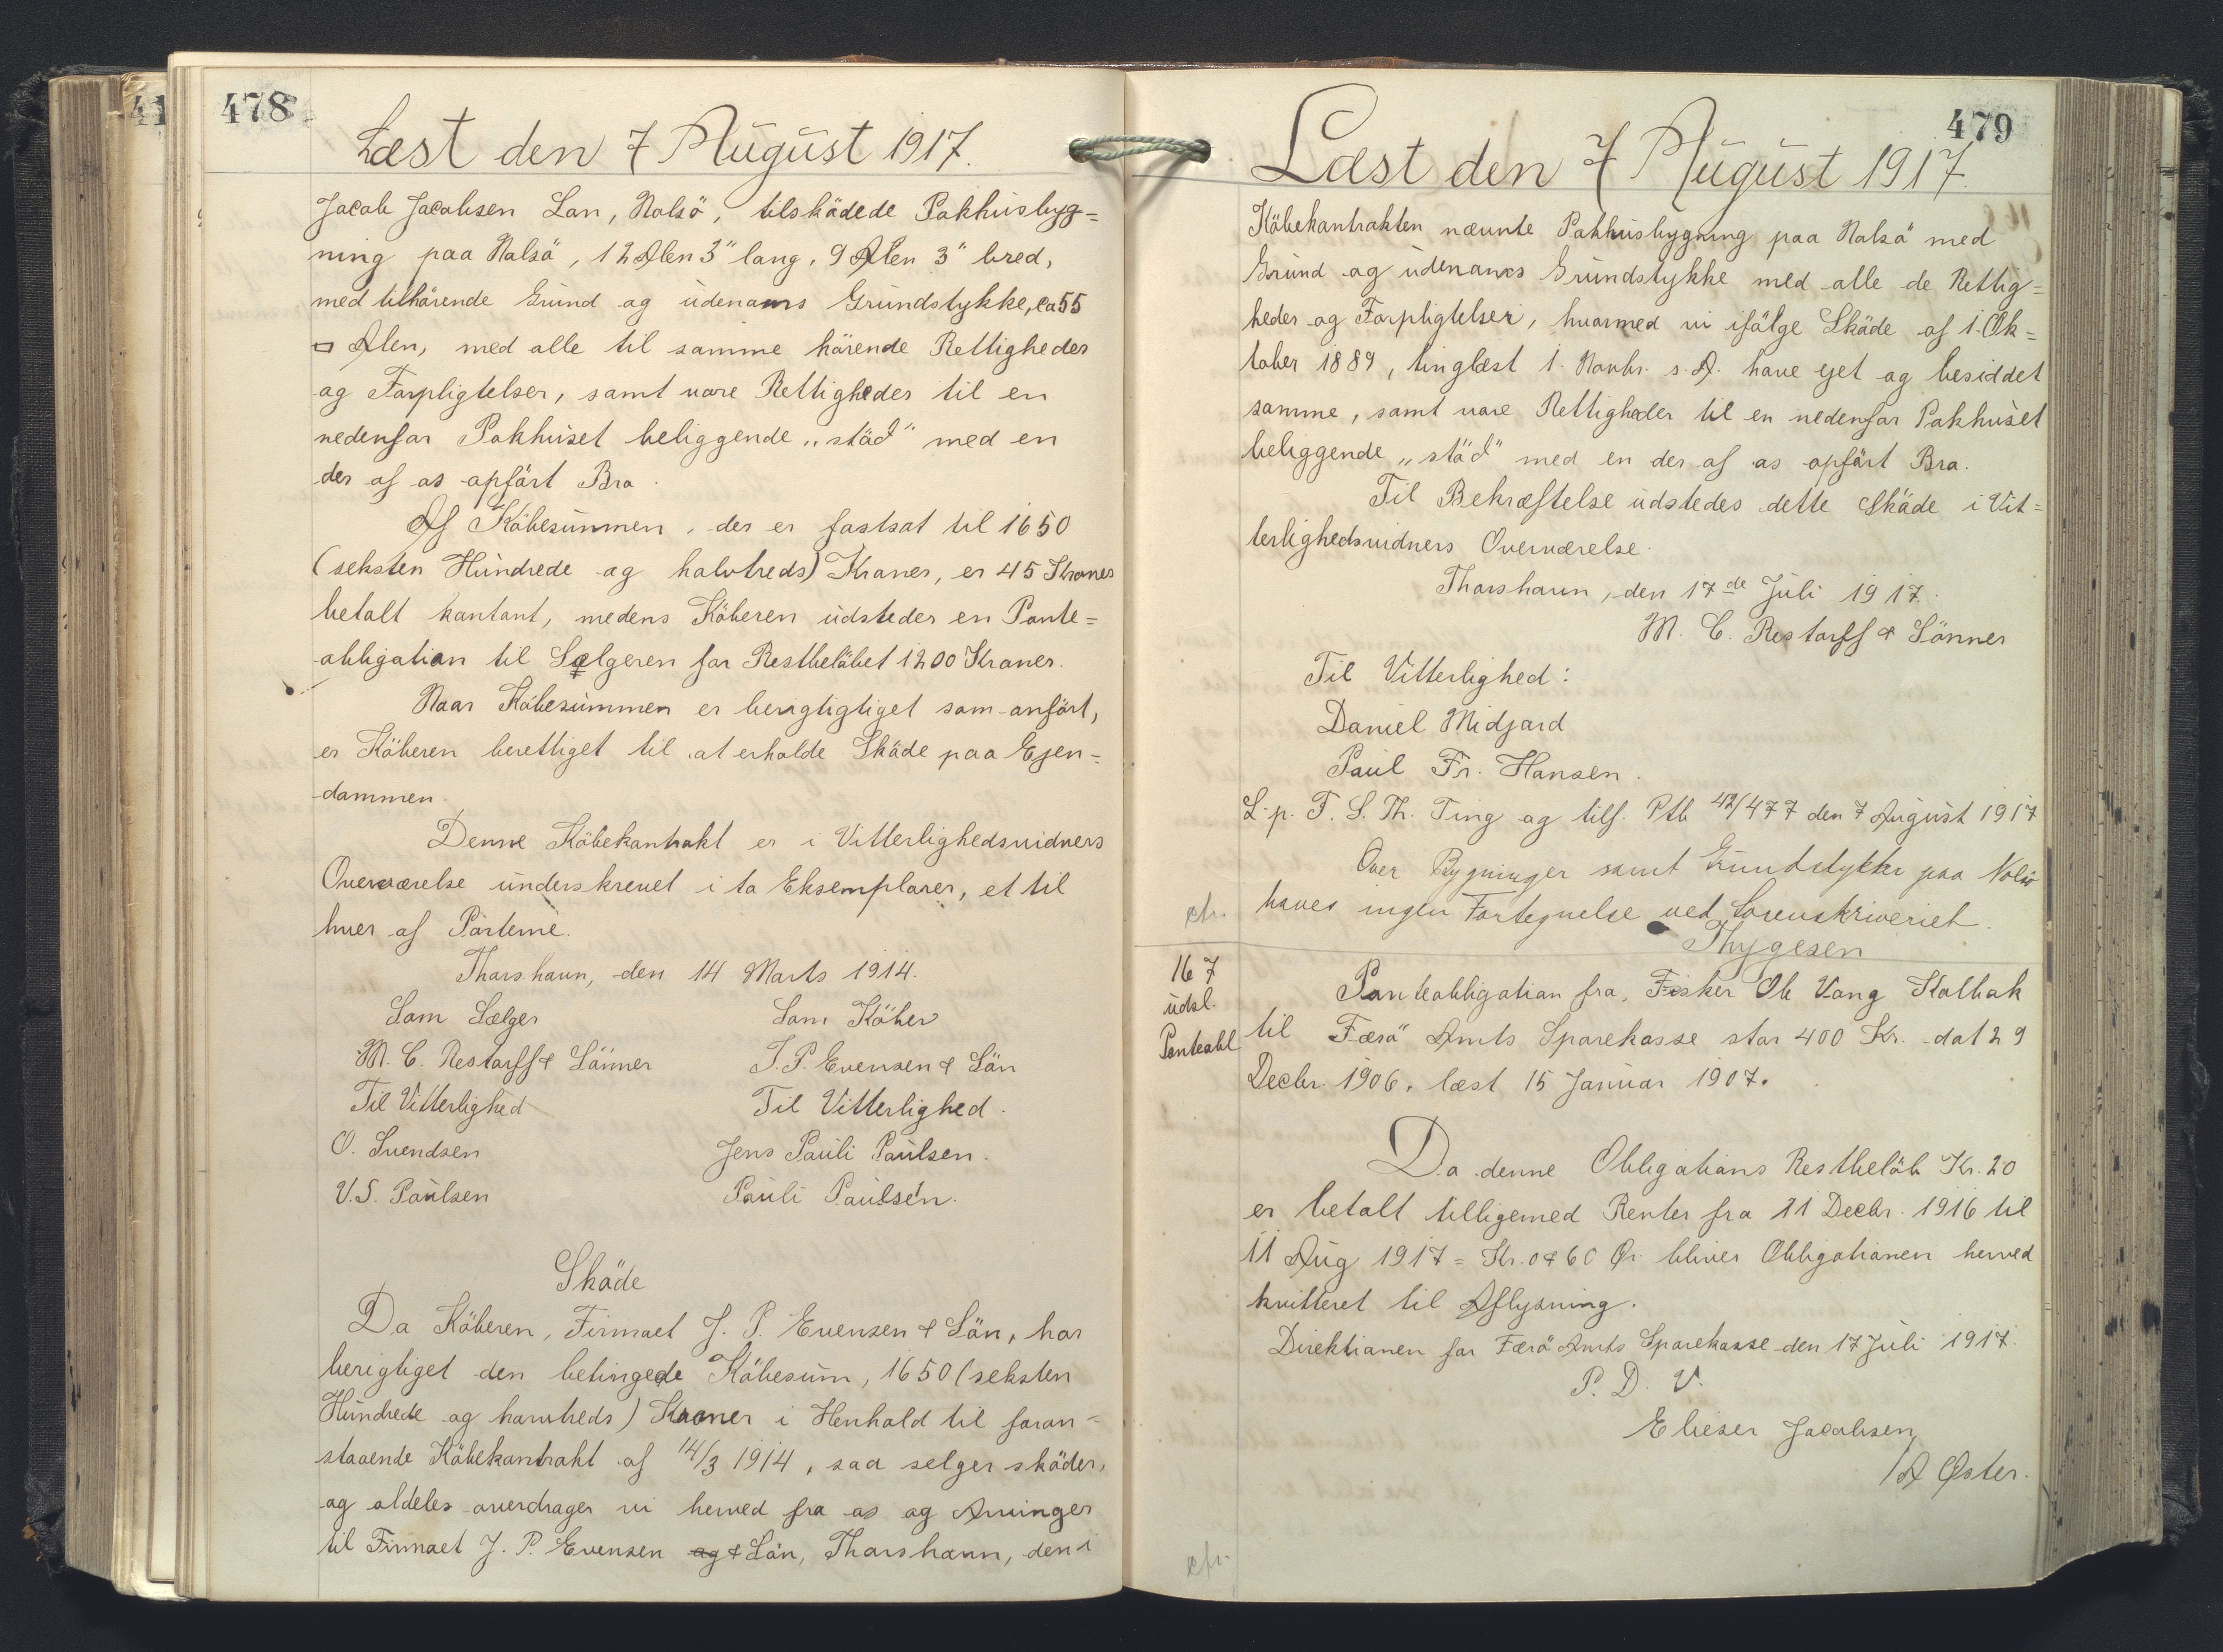 478
Læst den 7 August 1917.
Jacob Jacobsen Lon, Nolsö, tilsködede Pakhusbyg=
ning paa Nolsö, 12 Alen 3" lang, 9 Alen 3" bred,
med tilhörende Grund og udenoms Grundstykke, ca 55
□ Alen, med alle til samme hörende Rettigheder
og Forpligtelser, samt vore Rettigheder til en
nedenfor Pakhuset beliggende „stöd" med en
der af os opfört Bro.
Af Köbesummen, der er fastsat til 1650
(seksten Hundrede og halvtreds) Kroner, er 45 Kroner
betalt kontant, medens Köberen udsteder en Pante=
obligation til Sælgeren for Restbelöbet 1200 Kroner.
Naar Köbesummen er berigtigtiget som anfört,
er Köberen berettiget til at erholde Sköde paa Ejen=
dommen.
Denne Köbekontrakt er i Vitterlighedsvidners
Overværelse underskrevet i to Eksemplarer, et til
hver af Parterne.
Thorshavn, den 14 Marts 1914.
Som Sælger Som Köber
M. C. Restorff & Sönner J. P. Evensen & Sön
Til Vitterlighed Til Vitterlighed.
O. Svendsen Jens Pauli Paulsen.
V. S. Paulsen Pauli Paulsen.
Sköde
Da Köberen, Firmaet J. P. Evensen & Sön, har
berigtiget den betingede Köbesum, 1650 (seksten
Hundrede og halvtreds) Kroner i Henhold til foran=
staaende Köbekontrakt af 14/3 1914, saa selger sköder,
og aldeles overdrager vi herved fra os og Arvinger
til Firmaet J. P. Evensen og & Sön, Thorshavn, den i
479
Læst den 7 August 1917.
Köbekontrakten nævnte Pakhusbygning paa Nolsö med
Grund og udenoms Grundstykke med alle de Rettig=
heder og Forpligtelser, hvormed vi ifölge Sköde af 1. Ok=
tober 1889, tinglæst 1. Novbr. s. A. have ejet og besiddet
samme, samt vore Rettigheder til en nedenfor Pakhuset
beliggende „stöd" med en der af os opfört Bro.
Til Bekræftelse udstedes dette Sköde i Vit=
terlighedsvidners Overværelse.
Thorshavn, den 17de Juli 1917.
M. C. Restorff & Sönner
Til Vitterlighed:
Daniel Midjord
Paul Fr. Hansen.
L. p. T. S. Th. Ting og tilf. Ptb 42/477 den 7 August 1917
Over Bygninger samt Grundstykker paa Nolsö
cfr. haves ingen Fortegnelse ved Sorenskriveriet.
Thygesen
167
udsl.
Panteobl
Panteobligation fra, Fisker Ole Vang Kolbak
til Færö Amts Sparekasse stor 400 Kr. dat 29
Decbr. 1906. læst 15 Januar 1907.
Da denne Obligations Restbelöb Kr. 20
er betalt tilligemed Renter fra 11 Decbr. 1916 til
11 Aug 1917 = Kr. 0 & 60 Ør. bliver Obligationen herved
kvitteret til Aflysning.
Direktionen for Færö Amts Sparekasse den 17 Juli 1917.
P. D. V.
Elieser Jacobsen
/A Øster.
cfr.